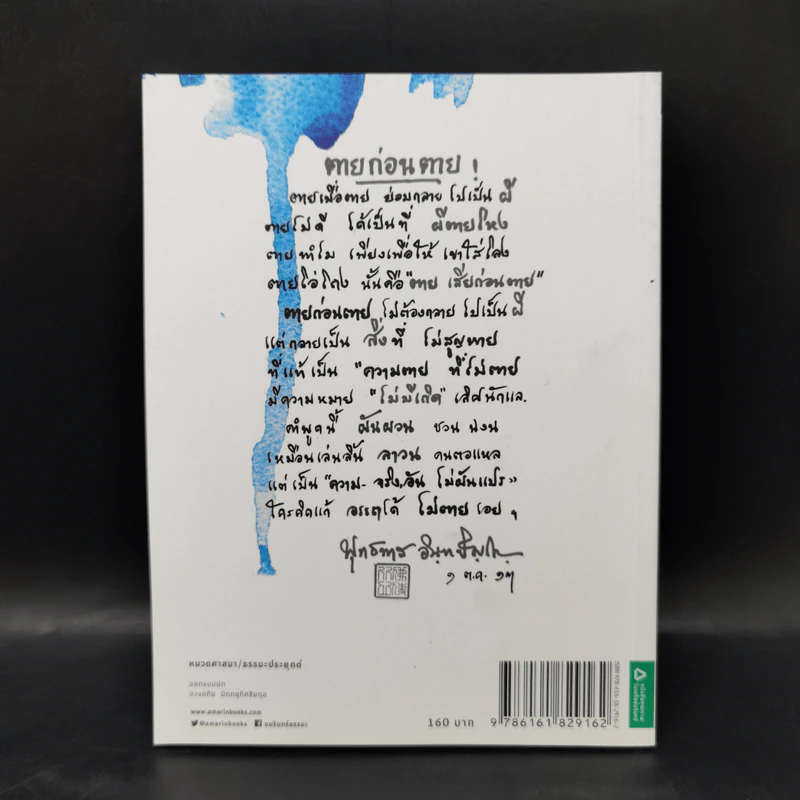 ตายก่อนตาย !
ตายเมื่อตาย ย่อมกลาย ไปเป็น ผี
ตายไม่ดี ได้เป็นที่ ผีตายโหง
ตายทำไม เพียงเพื่อให้ เขาใส่โลง
ตายโอ่โถง นั้นคือ "ตาย เสียก่อนตาย"
ตายก่อนตาย ไม่ต้องกลาย ไปเป็น ผี
แต่กลายเป็น สิ่งที่ ไม่สูญหาย
ที่แท้เป็น "ความตาย ที่ไม่ตาย"
มีความหมาย "ไม่มีเกิด" เลิศนักแล.
คำพูดนี้ ผันผวน ชวน ฉงน
เหมือนเล่นลิ้น ลาวน คนตอแหล
แต่เป็น "ความ-จริง, อัน ไม่ผันแปร"
ใครคิดแก้ อรรถได้ ไม่ตาย เอย ฯ
พุทธทาส อินฺทปญฺโญ
๑ ต.ค. ๑๓
หมวดศาสนา/ธรรมะประยุกต์
ออกแบบปก
www.amarinbooks.com
@amarinbooks อมรินทร์ธรรมะ
160 บาท
9 786161 829162